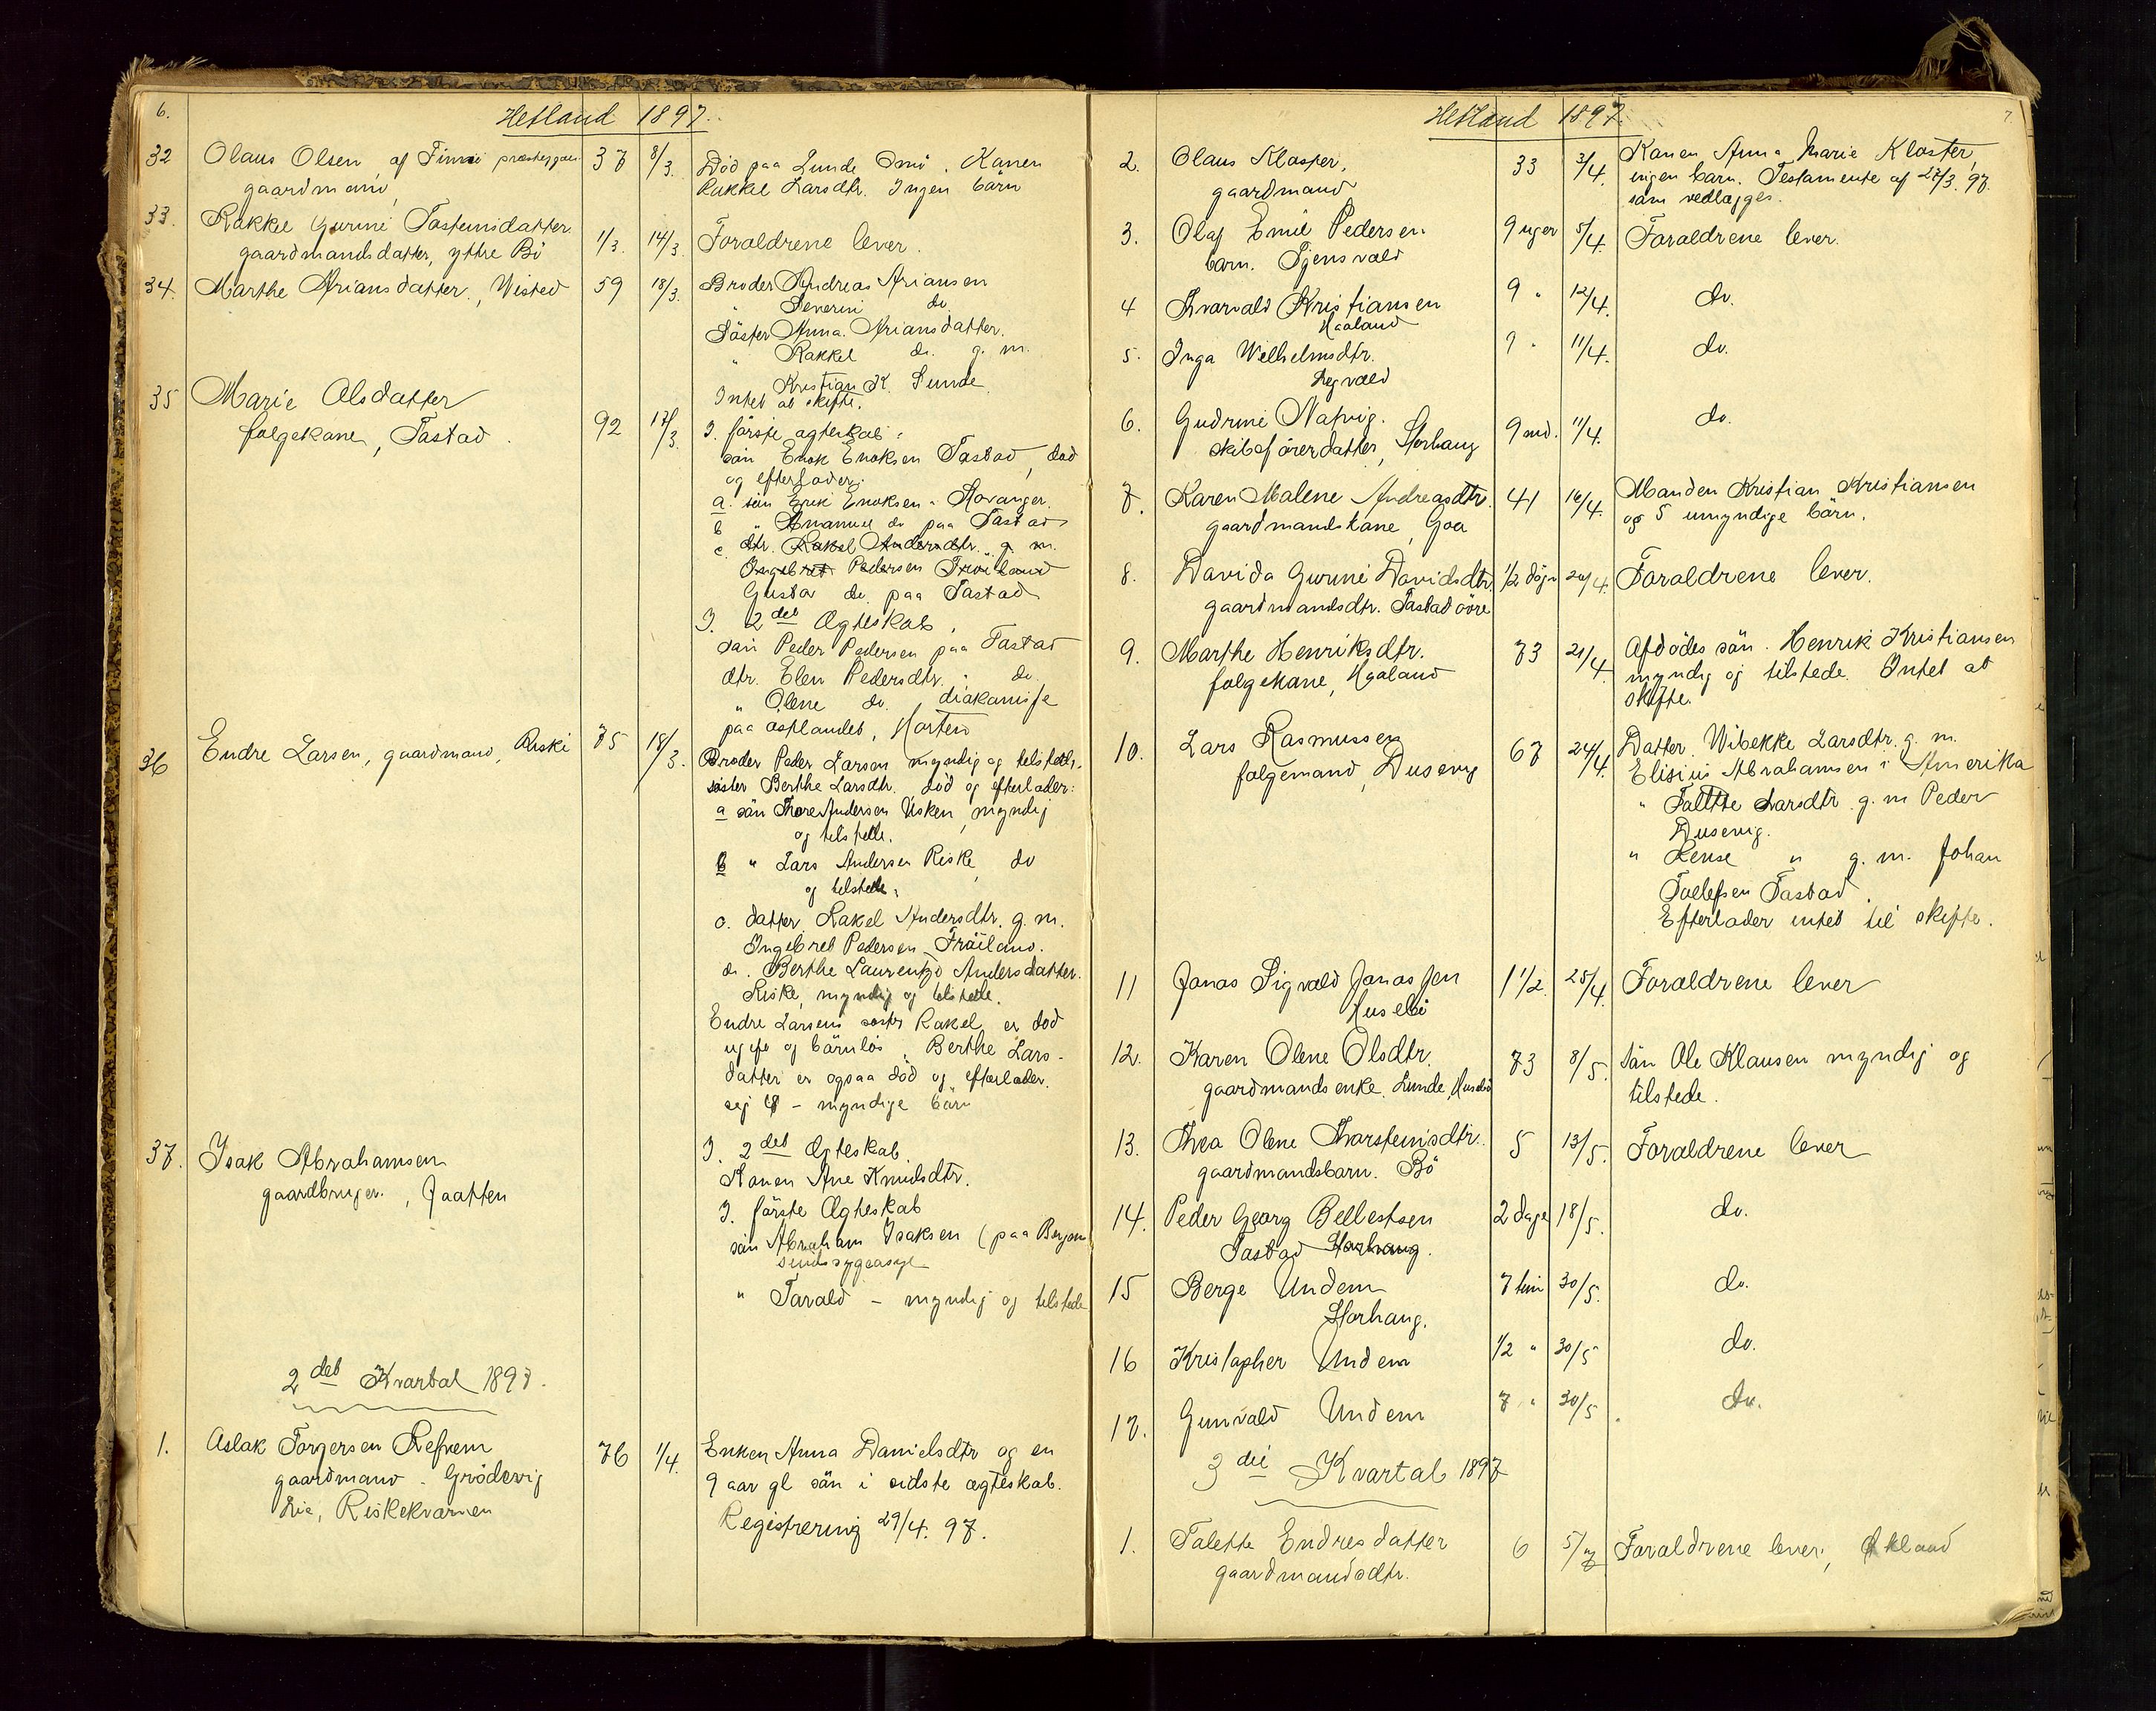 6.
Hetland 1897.
32 Olaus Olsen, af Finnø præstegaar 37 8/3. Død paa Lunde Omø. Konen
gaardmand, Rakkel Larsdtr. Ingen börn
33. Rakkel Gurine Tosteinsdatter
gaardmandsdatter, yttre Bö 1/3 14/3 Forældrene lever.
34. Marthe Ariansdatter, Wisted 59 18/3. Broder Andreas Ariansen
" Severin do.
Söster Anna Ariansdatter.
" Rakkel do. g. m.
Kristian K. Lunde
Intet at skifte.
35 Marie Olsdatter
folgekone, Tastad. 92 17/3. I. förste ægteskab:
sön Enok Enoksen Tastad, död
og efterlader:
a. sön Erik Enoksen - Stavanger.
b " Emanuel do paa Tastad
c. dtr. Rakel Andersdtr. g. m.
Ingebret Pedersen Froiland
Gustav do. paa Tastad
I. 2det Ægteskab,
sön Peder Pedersen paa Tastad
dtr. Elen Pedersdtr. " do.
" Olene do. diakonisse
paa østlandet, Horten
36 Endre Larsen, gaardmand, Riski 75 18/3. Broder Peder Larsen myndig og tilstede.
söster Berthe Larsdtr. död og efterlader:
a sön Thore Andersen Usken, myndig
og tilstede.
b " Lars Andersen Riske, do
og tilstede,
c. datter Rakel Andersdtr. g. m.
Ingebret Pedersen Fröiland.
d. Berthe Laurentze Andersdatter.
Riske, myndig og tilstede.
Endre Larsens söster Rakel er död
ugift og börnlös. Berthe Lars-
datter er ogsaa död og efterlader
sej 4 - myndige börn
37. Isak Abrahamsen
gaardbruger, Jaatten
I. 2det Ægteskab
Konen Ane Knudsdtr.
I. förste Ægteskab
sön Abraham Isaksen (paa Bergen
sindssygeasyl
" Tarald - myndig og tilstede
2det Kvartal 1897.
1. Aslak Torgersen Refnem 76 1/4. Enken Anna Danielsdtr og en
gaardmand - Grödevig 9 aar gl sön i sidste ægteskab.
Lia, Riskekvarven Registrering 29/4. 97.
7
Hetland 1897.
2. Olaus Kloster, 33 3/4. Konen Anna Marie Kloster,
gaardmand ingen barn. Testamente af 27/3. 97.
som vedlægges.
3. Olaf Emil Pedersen 9 uger 5/4. Forældrene lever.
barn. Tjensvold
4 Thorvald Kristiansen 9 " 12/4. do.
Haaland
5. Inga Wilhelmsdtr. 9 " 11/4. do.
6. Gudrun Natvig. 9 md. 11/4. do.
skibsförerdatter, Storhaug
7. Karen Malene Andreasdtr. 41 16/4. Manden Kristian Kristiansen
gaardmandskone, Goa og 5 umyndige börn.
8. Davida Gurine Davidsdtr. 1/2 dögn 20/4. Forældrene lever.
gaardmandsdtr. Tastad övre
9. Marthe Henriksdtr. 73 21/4. Afdödes sön. Henrik Kristiansen
folgekone, Haaland myndig og tilstede. Intet at
skifte.
10. Lars Rasmussen 67 24/4. Datter Wibekke Larsdtr. g. m.
folgemand, Dusevig Elisius Abrahamsen i Amerika
" Talette Larsdtr. g. m Peder
Dusevig.
" Rense " g. m. Johan
Tollefsen Tastad.
Efterlader intet til skifte.
11 Jonas Sigvald Jonassen 1 1/2. 28/4. Forældrene lever
Husebö
12. Karen Olene Olsdtr. 73 8/5. Sön Ole Klausen myndig og
gaardmands enke. Lunde, Husebö tilstede.
13. Thea Olene Thorsteinsdtr. 5 13/5. Forældrene lever
gaardmandsbarn. Bö
14. Peder Georg Bellestsen 2 dage 18/5. do.
Tastad Storhaug.
15 Berge Undem 7 tim 30/5. do.
Storhaug.
16 Kristopher Undem 1/2 " 30/5 do.
17. Gunvald Undem 7 " 30/5 do.
3die Kvartal 1897
1. Talette Endresdatter 6 5/7 Forældrene lever, Økland
gaardmandsdtr.